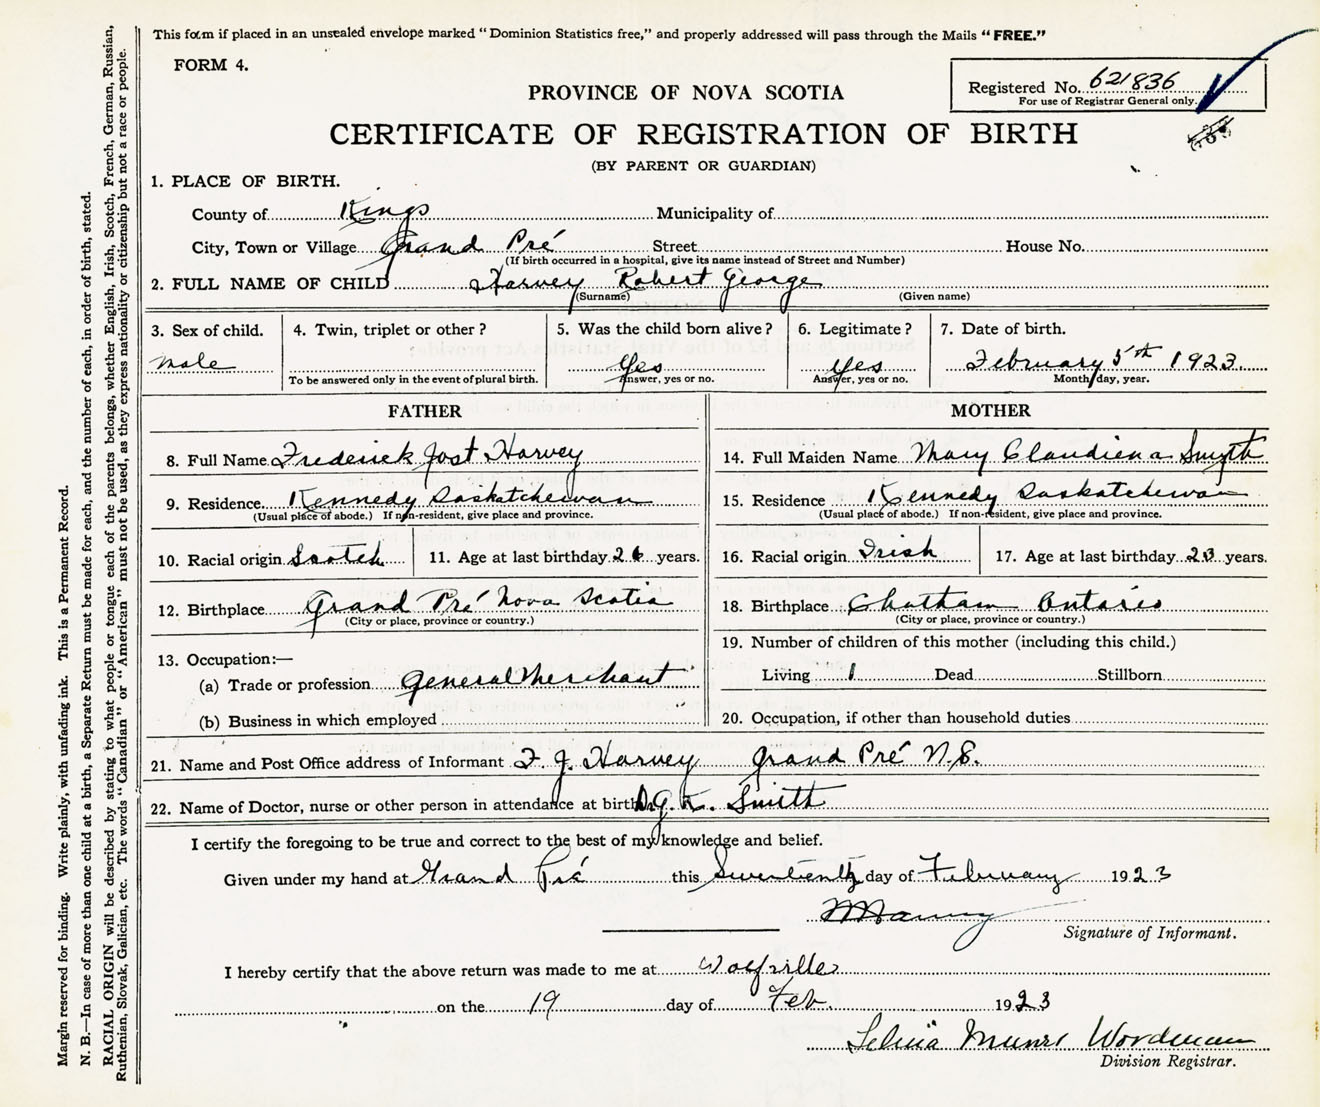 This form if placed in an unsealed envelope marked "Dominion Statistics free," and properly addressed will pass through the Mails "FREE."
FORM 4.
Registered No. 621836
For use of Registrar General only.
PROVINCE OF NOVA SCOTIA
CERTIFICATE OF REGISTRATION OF BIRTH
(BY PARENT OR GUARDIAN)
1. PLACE OF BIRTH.
County of Kings Municipality of
City, Town or Village Grand Pré Street House No.
(If birth occurred in a hospital, give its name instead of Street and Number)
2. FULL NAME OF CHILD Harvey Robert George
(Surname) (Given name)
3. Sex of child. 4. Twin, triplet or other? 5. Was the child born alive? 6. Legitimate? 7. Date of birth.
male Yes Yes February 5th 1923
To be answered only in the event of plural birth. Answer, yes or no. Answer, yes or no. Month, day, year.
FATHER MOTHER
8. Full Name Frederick Jost Harvey 14. Full Maiden Name Mary Claudiena Smyth
9. Residence Kennedy Saskatchewan 15. Residence Kennedy Saskatchewan
(Usual place of abode.) If non-resident, give place and province. (Usual place of abode.) If non-resident, give place and province.
10. Racial origin Scotch 11. Age at last birthday 26 years. 16. Racial origin Irish 17. Age at last birthday 23 years.
12. Birthplace Grand Pré Nova Scotia 18. Birthplace Chatham Ontario
(City or place, province or country.) (City or place, province or country.)
19. Number of children of this mother (including this child.)
13. Occupation:—
(a) Trade or profession General Merchant Living 1 Dead Stillborn
(b) Business in which employed 20. Occupation, if other than household duties
21. Name and Post Office address of Informant F. J. Harvey Grand Pré N.S.
22. Name of Doctor, nurse or other person in attendance at birth Smith
I certify the foregoing to be true and correct to the best of my knowledge and belief.
Given under my hand at Grand Pré this Seventeenth day of February 1923
Signature of Informant.
I hereby certify that the above return was made to me at Wolfville
on the 19 day of Feb. 1923
Munro
Division Registrar.
Margin reserved for binding. Write plainly, with unfading ink. This is a Permanent Record.
N. B.—In case of more than one child at a birth, a Separate Return must be made for each, and the number of each, in order of birth, stated.
RACIAL ORIGIN will be described by stating to what people or tongue each of the parents belongs, whether English, Irish, Scotch, French, German, Russian,
Ruthenian, Slovak, Galician, etc. The words "Canadian" or "American" must not be used, as they express nationality or citizenship but not a race or people.